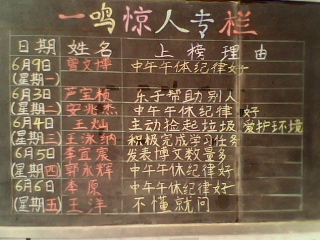 一鸣惊人专栏
日期 姓名 上榜理由
6月9日 曾文博 中午午休纪律好
(星期一)
6月3日 芦宝桢 乐于帮助别人
(星期二) 安兆杰 中午午休纪律好
6月4日 王灿 主动捡起垃圾 爱护环境
(星期三) 王泳纳 积极完成学习任务
6月5日 李宜宸 发表博文数量多
(星期四) 郭永辉 中午午休纪律好
6月6日 李原 中午午休纪律好
(星期五) 王洋 不懂就问